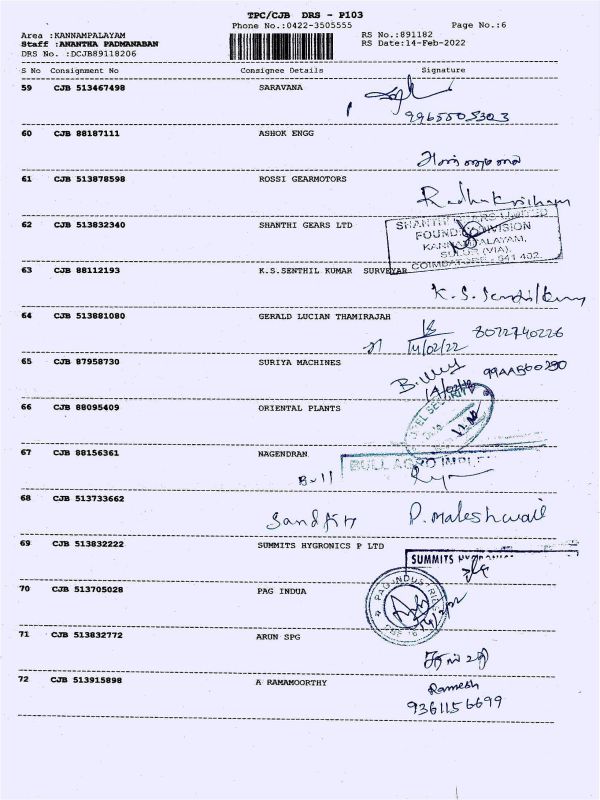 TPC/CJB DRS - P103
Phone No.:0422-3505555
Page No.:6
Area :KANNAMPALAYAM
RS No.:891182
Staff :ANANTHA PADMANABAN
RS Date:14-Feb-2022
DRS No. :DCJB89118206
S No Consignment No Consignee Details Signature
59 CJB 513467498 SARAVANA
9965505303
60 CJB 88187111 ASHOK ENGG
61 CJB 513878598 ROSSI GEARMOTORS
Radhakrisham
62 CJB 513832340 SHANTHI GEARS LTD
SHANTHI GEARS LIMITED
FOUNDRY DIVISION
KANNAMPALAYAM,
SULUR (VIA),
COIMBATORE - 641 402.
63 CJB 88112193 K.S.SENTHIL KUMAR SURVEYAR
K.S.Senthilkumar
64 CJB 513881080 GERALD LUCIAN THAMIRAJAH
14/02/22 8072740226
65 CJB 87958730 SURIYA MACHINES
66 CJB 88095409 ORIENTAL PLANTS
67 CJB 88156361 NAGENDRAN
BULL AGRO IMPLE
Bull
68 CJB 513733662
P. Maleshwari
69 CJB 513832222 SUMMITS HYGRONICS P LTD
SUMMITS
70 CJB 513705028 PAG INDUA
PAG INDUSTRIA
71 CJB 513832772 ARUN SPG
72 CJB 513915898 A RAMAMOORTHY
Ramesh
9361156699